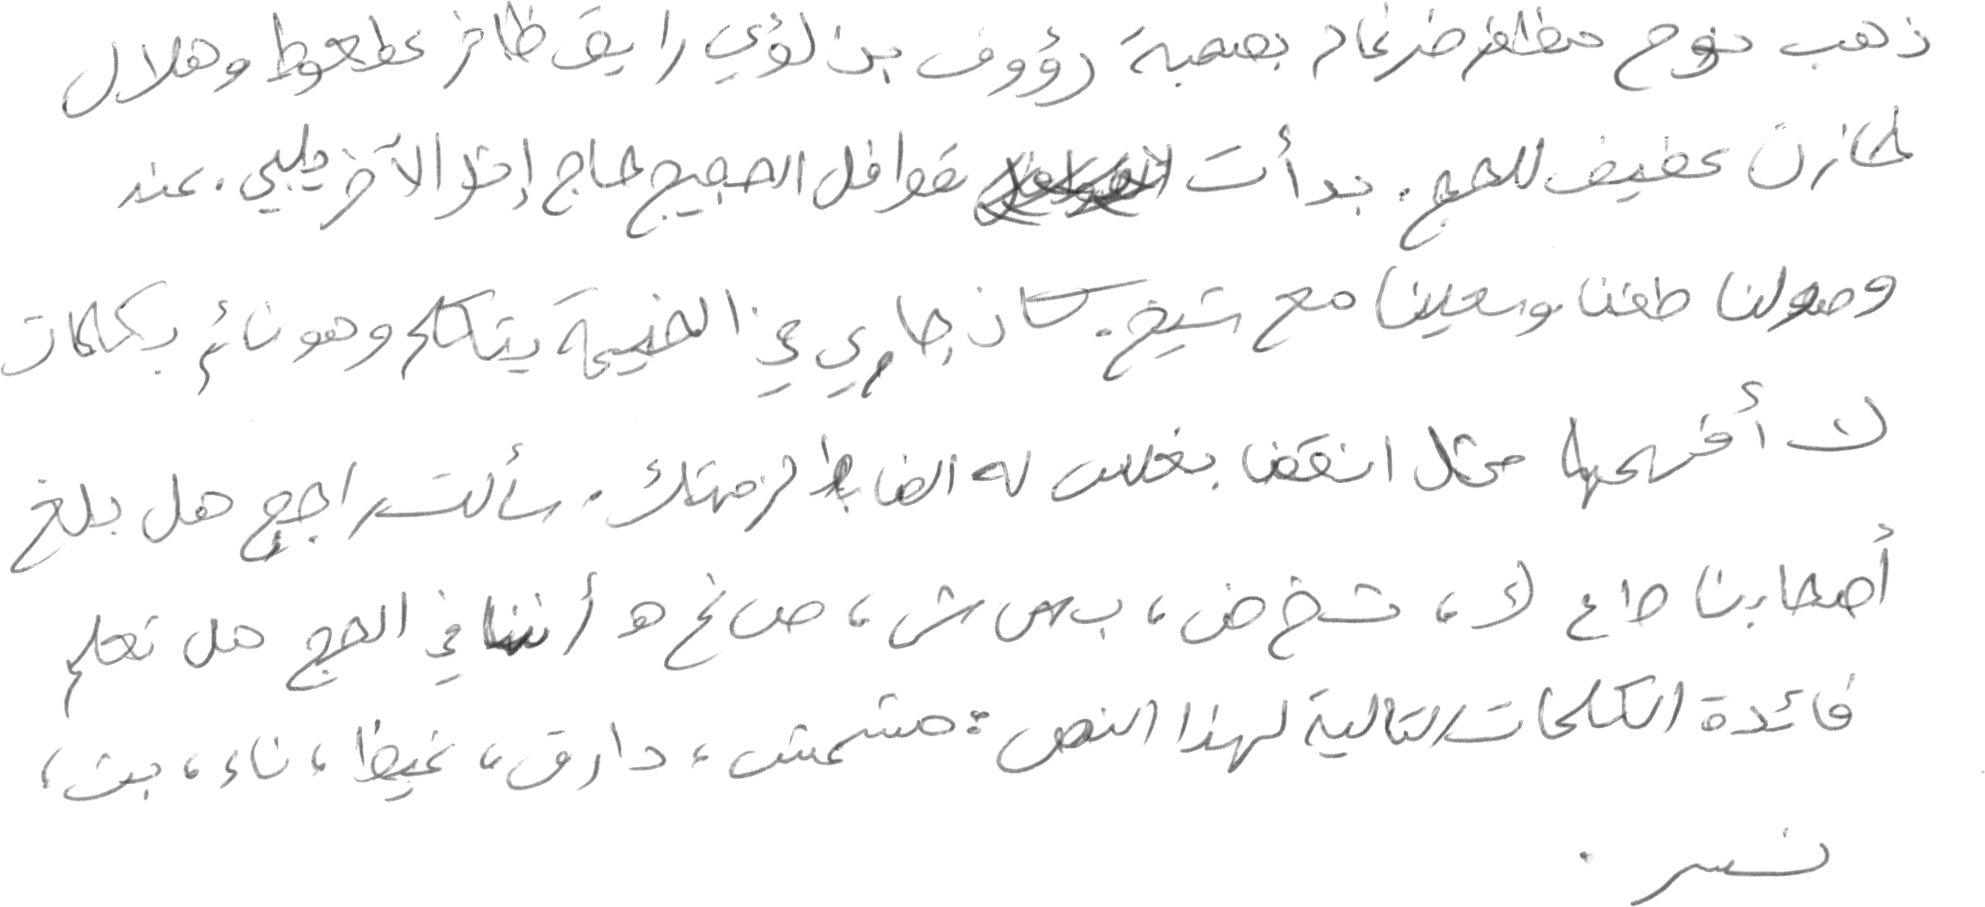 ذهب نوح مظفر ضرغام بصحبة رؤوف بن لؤي رايق ظافر عطعوط وهلال
خازن عفيف للحج. بدأت قوافل الحجيج حاج إثر الآخر يلبي. عند
وصولنا طفنا وسعينا مع شيخ. كان جاري في الخيمة يتكلم وهو نائم بكلمات
لا أفهمها مثل انقضا بغلس له الضابط لزمتك. سألت راجح هل بلغ
أصحابنا ط ع ك، ث خ ض، ب س ش، ص غ ه أننا في الحج هل تعلم
فائدة الكلمات التالية لهذا النص: مشمش، دارق، غيظ، ناء، بث،
نسر.